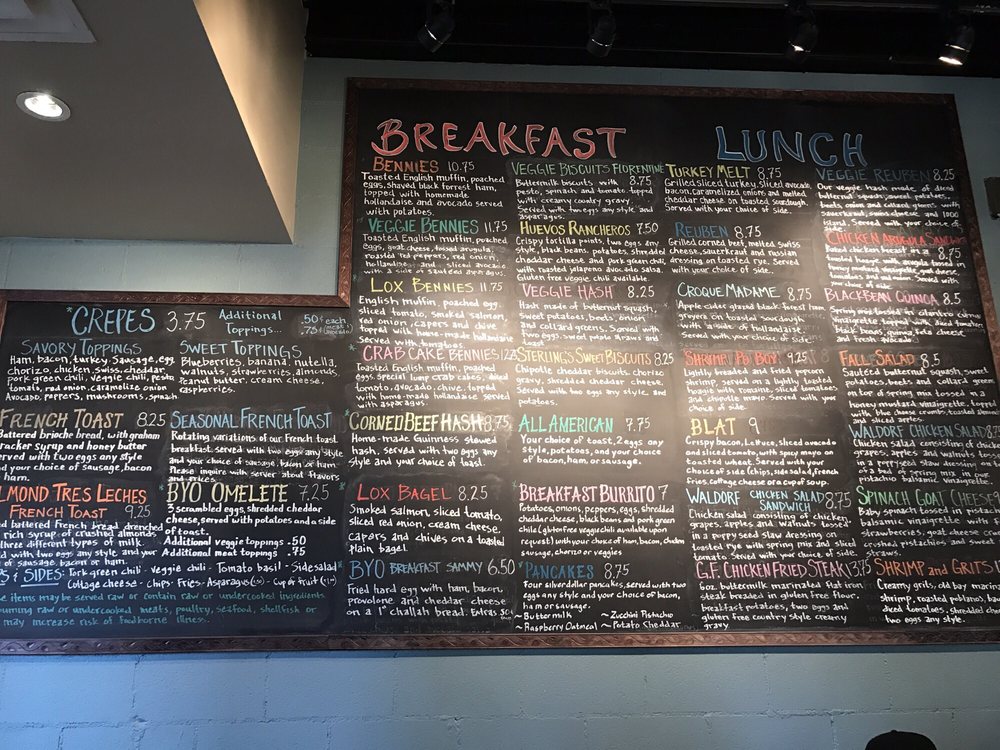 BREAKFAST
LUNCH
BENNIES 10.75
Toasted English muffin, poached
eggs, shaved black forrest ham,
topped with homemade
hollandaise and avocado served
with potatoes.
VEGGIE BENNIES 11.75
Toasted English muffin, poached
eggs, goat cheese, tossed arugula,
roasted red peppers, red onion,
hollandaise and sliced avocado
with a side of sauteed asparagus.
LOX BENNIES 11.75
English muffin, poached egg
sliced tomato, smoked salmon,
red onion, capers and chive
topped with house-made hollandaise
served with tomatoes.
CRAB CAKE BENNIES
Toasted English muffin, poached
eggs, special lump crab cakes,
tomato, avocado, chive, topped
with home-made hollandaise served
with asparagus.
*CORNED BEEF HASH 8.75
Home-made Guinness stewed
hash, served with two eggs any
style and your choice of toast.
LOX BAGEL 8.25
Smoked salmon, sliced tomato,
sliced red onion, cream cheese,
capers and chives on a toasted
plain bagel.
*BYO BREAKFAST SAMMY 6.50
Fried hard egg with ham, bacon,
provolone and cheddar cheese
on a 1st Challah bread. Extras
VEGGIE BISCUITS FLORENTINE
Buttermilk biscuits with 8.75
pesto, spinach and tomato topped
with creamy country gravy.
Served with two eggs any style and
asparagus.
HUEVOS RANCHEROS 7.50
Crispy tortilla points, two eggs any
style, black beans, potatoes, shredded
cheddar cheese and pork green chili
with roasted jalapeno avocado salsa.
Gluten free veggie chili available
VEGGIE HASH 8.25
Hash made of butternut squash,
Sweet potatoes, beets, onion,
and collard greens. Served with
two eggs, sweet potato
STERLING'S SWEET BISCUITS 8.25
Chipotle cheddar biscuits, chorizo
gravy, shredded cheddar cheese.
Served with two eggs any style, and
potatoes.
ALL AMERICAN 7.75
Your choice of toast, 2 eggs any
style, potatoes, and your choice
of bacon, ham, or sausage.
*BREAKFAST BURRITO 7
Potatoes, onions, peppers, eggs, shredded
cheddar cheese, black beans and pork green
chile (gluten free veggie chili available upon
request) with your choice of ham, bacon, chicken
sausage, chorizo or veggies
*PANCAKES 8.75
Four silver dollar pancakes, served with two
eggs any style and your choice of bacon,
ham or sausage.
~Buttermilk ~Zucchini Pistachio
~Raspberry Oatmeal ~Potato Cheddar
TURKEY MELT 8.75
Grilled sliced turkey, sliced avocado,
bacon, caramelized onions and melted
cheddar cheese on toasted sourdough.
Served with your choice of side.
REUBEN 8.75
Grilled corned beef, melted swiss
cheese, sauerkraut and russian
dressing on toasted rye. Served
with your choice of side.
CROQUE MADAME 8.75
Apple cider glazed black forest ham,
gruyere on toasted sourdough
with a side of hollandaise
SHRIMP PO BOY 9.25
Lightly breaded and fried popcorn
shrimp, served on a lightly toasted
hoagie with romaine, sliced tomatoes,
and chipotle mayo. Served with your
choice of side.
BLAT 9
Crispy bacon, Lettuce, sliced avocado
and sliced tomato, with spicy mayo on
toasted wheat. Served with your
choice of side (chips, side salad, french
fries, cottage cheese or a cup of soup.
WALDORF CHICKEN SALAD SANDWICH 8.75
Chicken salad consisting of
grapes, apples and walnuts tossed
in a poppy seed slaw dressing on
toasted rye with spring mix and sliced
tomato. Served with your choice of side.
G.F. CHICKEN FRIED STEAK 13.75
G.F. buttermilk marinated flat iron
steak breaded in gluten free flour,
breakfast potatoes, two eggs and
gluten free country style creamy
gravy.
VEGGIE REUBEN 8.25
Our veggie hash made of diced
butternut squash, sweet potatoes,
beets, onion and collard greens with
sauerkraut, swiss cheese and 1000
island. Served with your choice of
side.
CHICKEN ARUGULA SANDWICH
Baked chicken breast in a 8.75
toasted hoagie with arugula tossed in
honey mustard vinaigrette, goat cheese
tomatoes and red onion. Served
with your choice of side.
BLACK BEAN QUINOA 8.5
Spring mix tossed in cilantro citrus
vinaigrette topped with diced tomatoes,
black beans, quinoa, feta cheese
and fresh avocado.
FALL SALAD 8.5
Sauteed butternut squash, sweet
potatoes, beets and collard greens
on top of spring mix tossed in a
honey mustard vinaigrette, topped
with blue cheese crumbs, toasted almonds
and sliced apples.
WALDORF CHICKEN SALAD
Chicken salad consisting of diced
grapes, apples and walnuts tossed
in a poppyseed slaw dressing on top
of a bed of spring mix tossed in
pistachio balsamic vinaigrette.
SPINACH GOAT CHEESE
Baby spinach tossed in pistachio
balsamic vinaigrette with
strawberries, goat cheese
crushed pistachios and sweet
straws.
SHRIMP and GRITS
Creamy grits, old bay marinated
shrimp, roasted poblano, bacon
diced tomatoes, shredded
two eggs any style.
*CREPES 3.75
Additional Toppings... .50¢ each
.75
SAVORY TOPPINGS
Ham, bacon, turkey sausage, egg
chorizo, chicken, swiss, cheddar
pork green chili, veggie chili, pesto
tomato, red onion, caramelized onion
Avocado, peppers, mushrooms, spinach
SWEET TOPPINGS
Blueberries, banana, nutella,
walnuts, strawberries, almonds,
peanut butter, cream cheese,
raspberries.
FRENCH TOAST 8.25
Battered brioche bread, with graham
cracker syrup and honey butter
served with two eggs any style
and your choice of sausage, bacon
or ham.
SEASONAL FRENCH TOAST
Rotating variations of our French toast
breakfast served with two eggs any style
and your choice of sausage, bacon or ham.
Please inquire with server about flavors
and prices.
ALMOND TRES LECHES
FRENCH TOAST 9.25
battered French bread, drenched
rich syrup of crushed almonds
three different types of milk.
with two eggs any style and your
of sausage, bacon or ham.
*BYO OMELETE 7.25
3 scrambled eggs, shredded cheddar
cheese, served with potatoes and a side
of toast.
Additional veggie toppings .50
Additional meat toppings .75
& SIDES: Pork green chili · Veggie chili · Tomato basil · Side salad
Cottage cheese · Chips · Fries · Asparagus · Cup of fruit
items may be served raw or contain raw or undercooked ingredients
raw or undercooked meats, poultry, seafood, shellfish or
may increase risk of foodborne illness.